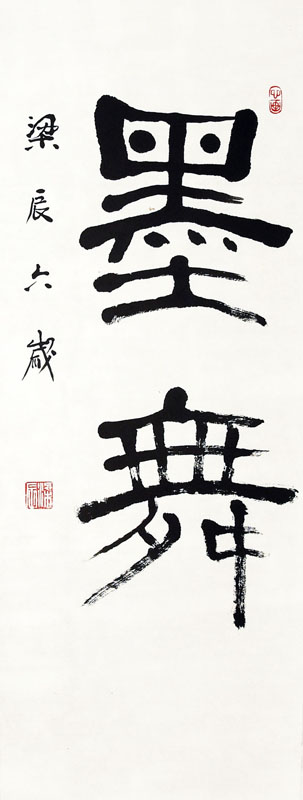 墨舞
梁辰六歲